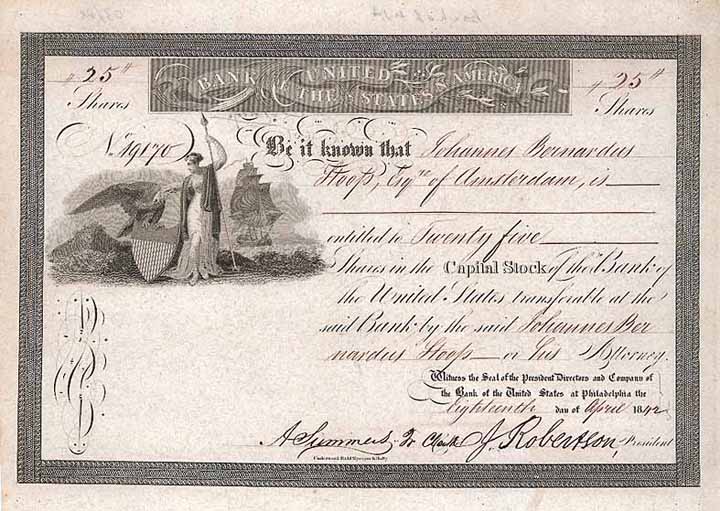 # 25 #
Shares
BANK OF THE UNITED STATES of AMERICA
# 25 #
Shares
No. 19170
Be it known that Johannes Bernardus
Stoop, Esqre. of Amsterdam, is
entitled to Twenty five
Shares in the Capital Stock of the Bank of
the United States transferable at the
said Bank by the said Johannes Ber
nardus Stoop or his Attorney.
Witness the Seal of the President Directors and Company of
the Bank of the United States at Philadelphia the
Eighteenth day of April 1842
A Summers, Tr. Clerk J. Robertson, President